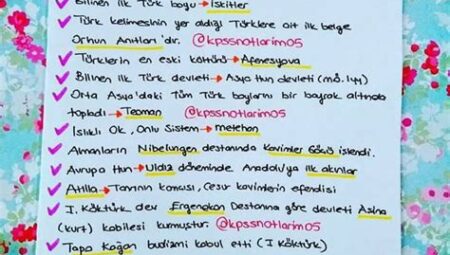 Bilinen ilk Türk boyu → İskitler
Türk kelimesinin yer aldığı Türklere ait ilk belge
Orhun Anıtları'dır. @kpssnotlarim05
Türklerin en eski kültürü → Afenesyova
Bilinen ilk Türk devleti → Asya Hun devleti (mö.
Orta Asya'daki Tüm Türk boylarını bir bayrak altında
topladı → Teoman @kpssnotlarim05
Islıklı Ok, Onlu Sistem → metehan
Almanların Nibelungen destanında Kavimler Göçü işlendi.
Avrupa Hun → Uldız döneminde Anadolu'ya ilk akınlar
Atilla → Tanrının kamçısı, Cesur kavimlerin efendisi
I. Köktürk dev Ergenekon Destanına göre devleti Asina
(kurt) kabilesi kurmuştur. @kpssnotlarim05
Tapo Kağan budizmi kabul etti (I Köktürk)